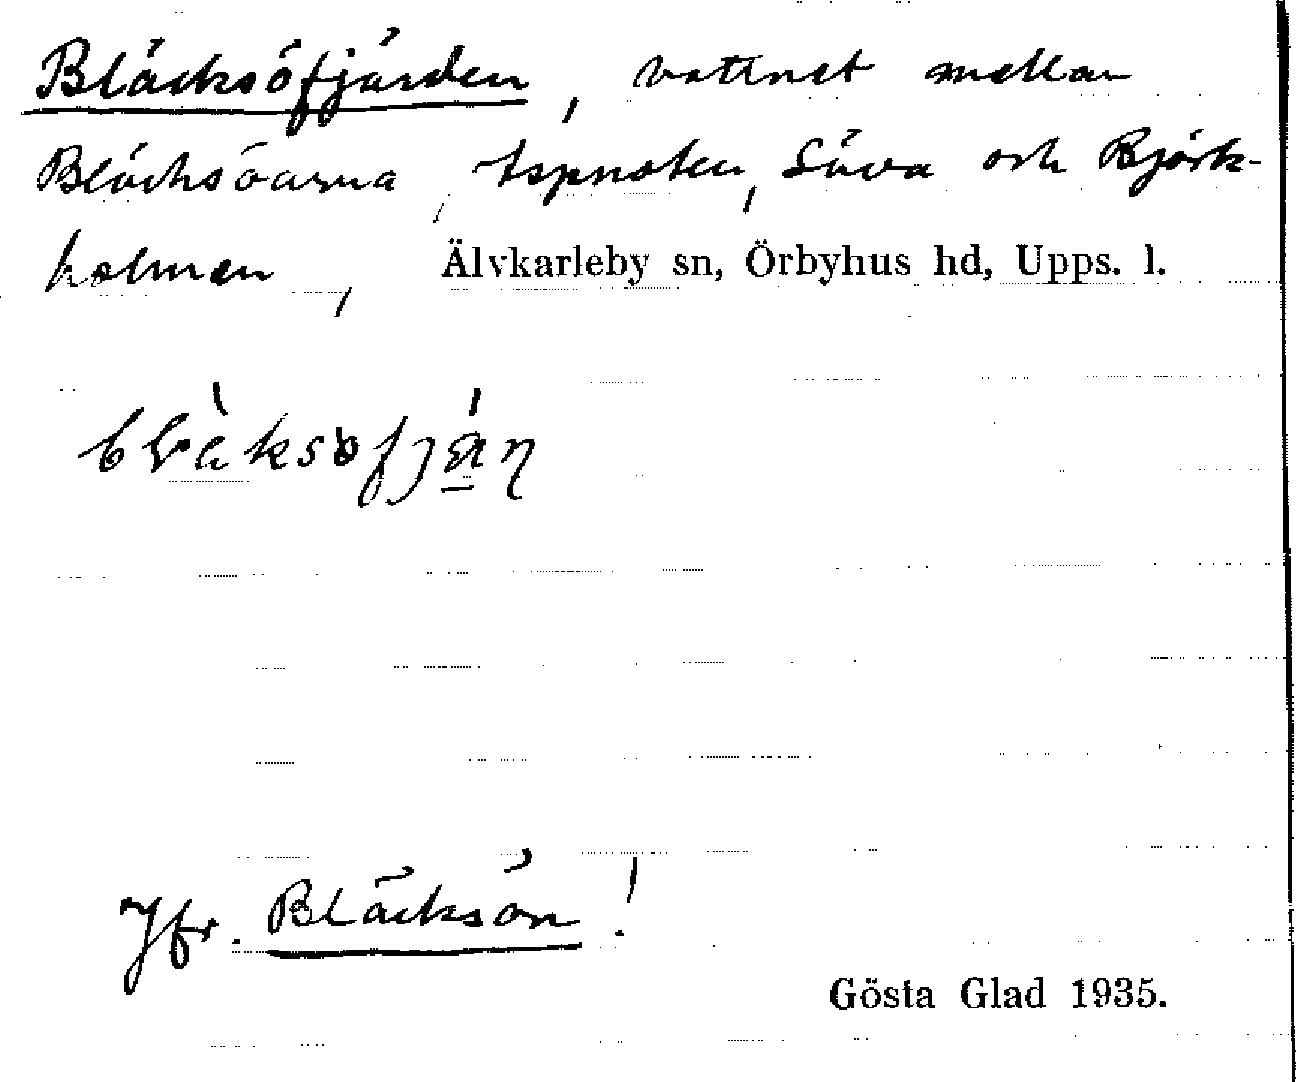 Bläcksöfjärden, vattnet mellan
Bläcksöarna, Ispnoten, Säva och Björk-
holmen, Älvkarleby sn, Örbyhus hd, Upps. l.
Jfr. Bläcksön!
Gösta Glad 1935.